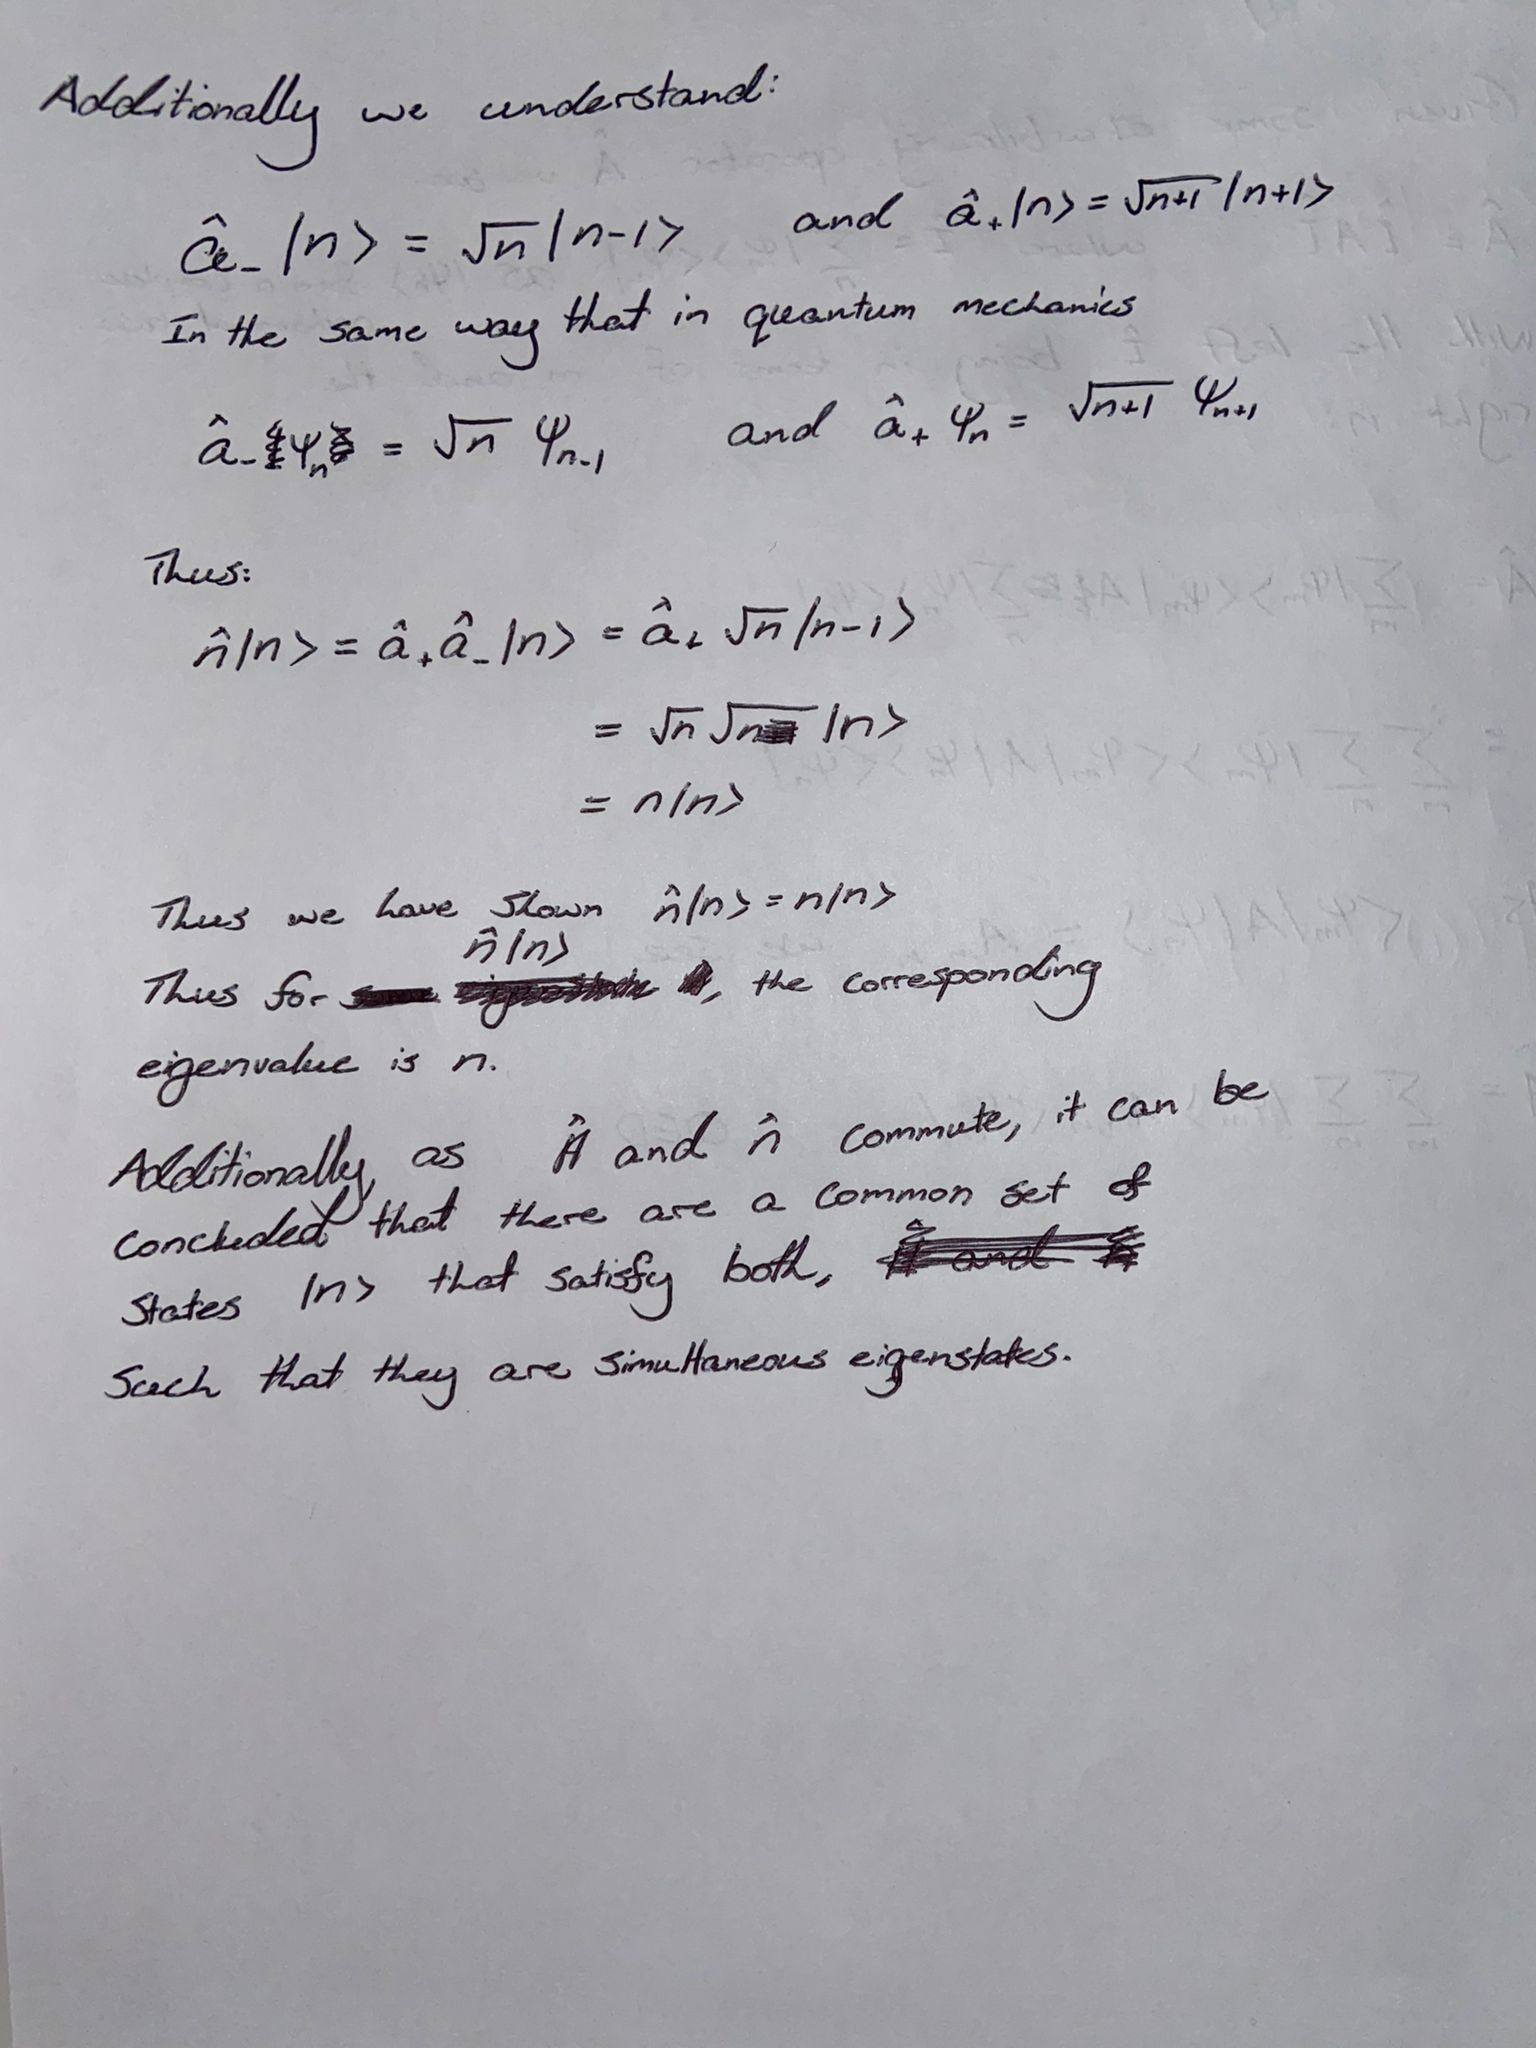 Additionally we understand:
â₋|n> = √n|n-1> and â₊|n> = √(n+1)|n+1>
In the same way that in quantum mechanics
â₋ψₙ = √n ψₙ₋₁ and â₊ψₙ = √(n+1) ψₙ₊₁
Thus:
n̂|n> = â₊â₋|n> = â₊√n|n-1>
= √n√n |n>
= n|n>
Thus we have shown n̂|n> = n|n>
n̂|n>
Thus for , the corresponding
eigenvalue is n.
Additionally, as Ĥ and n̂ commute, it can be
concluded that there are a common set of
states |n> that satisfy both,
Such that they are simultaneous eigenstates.